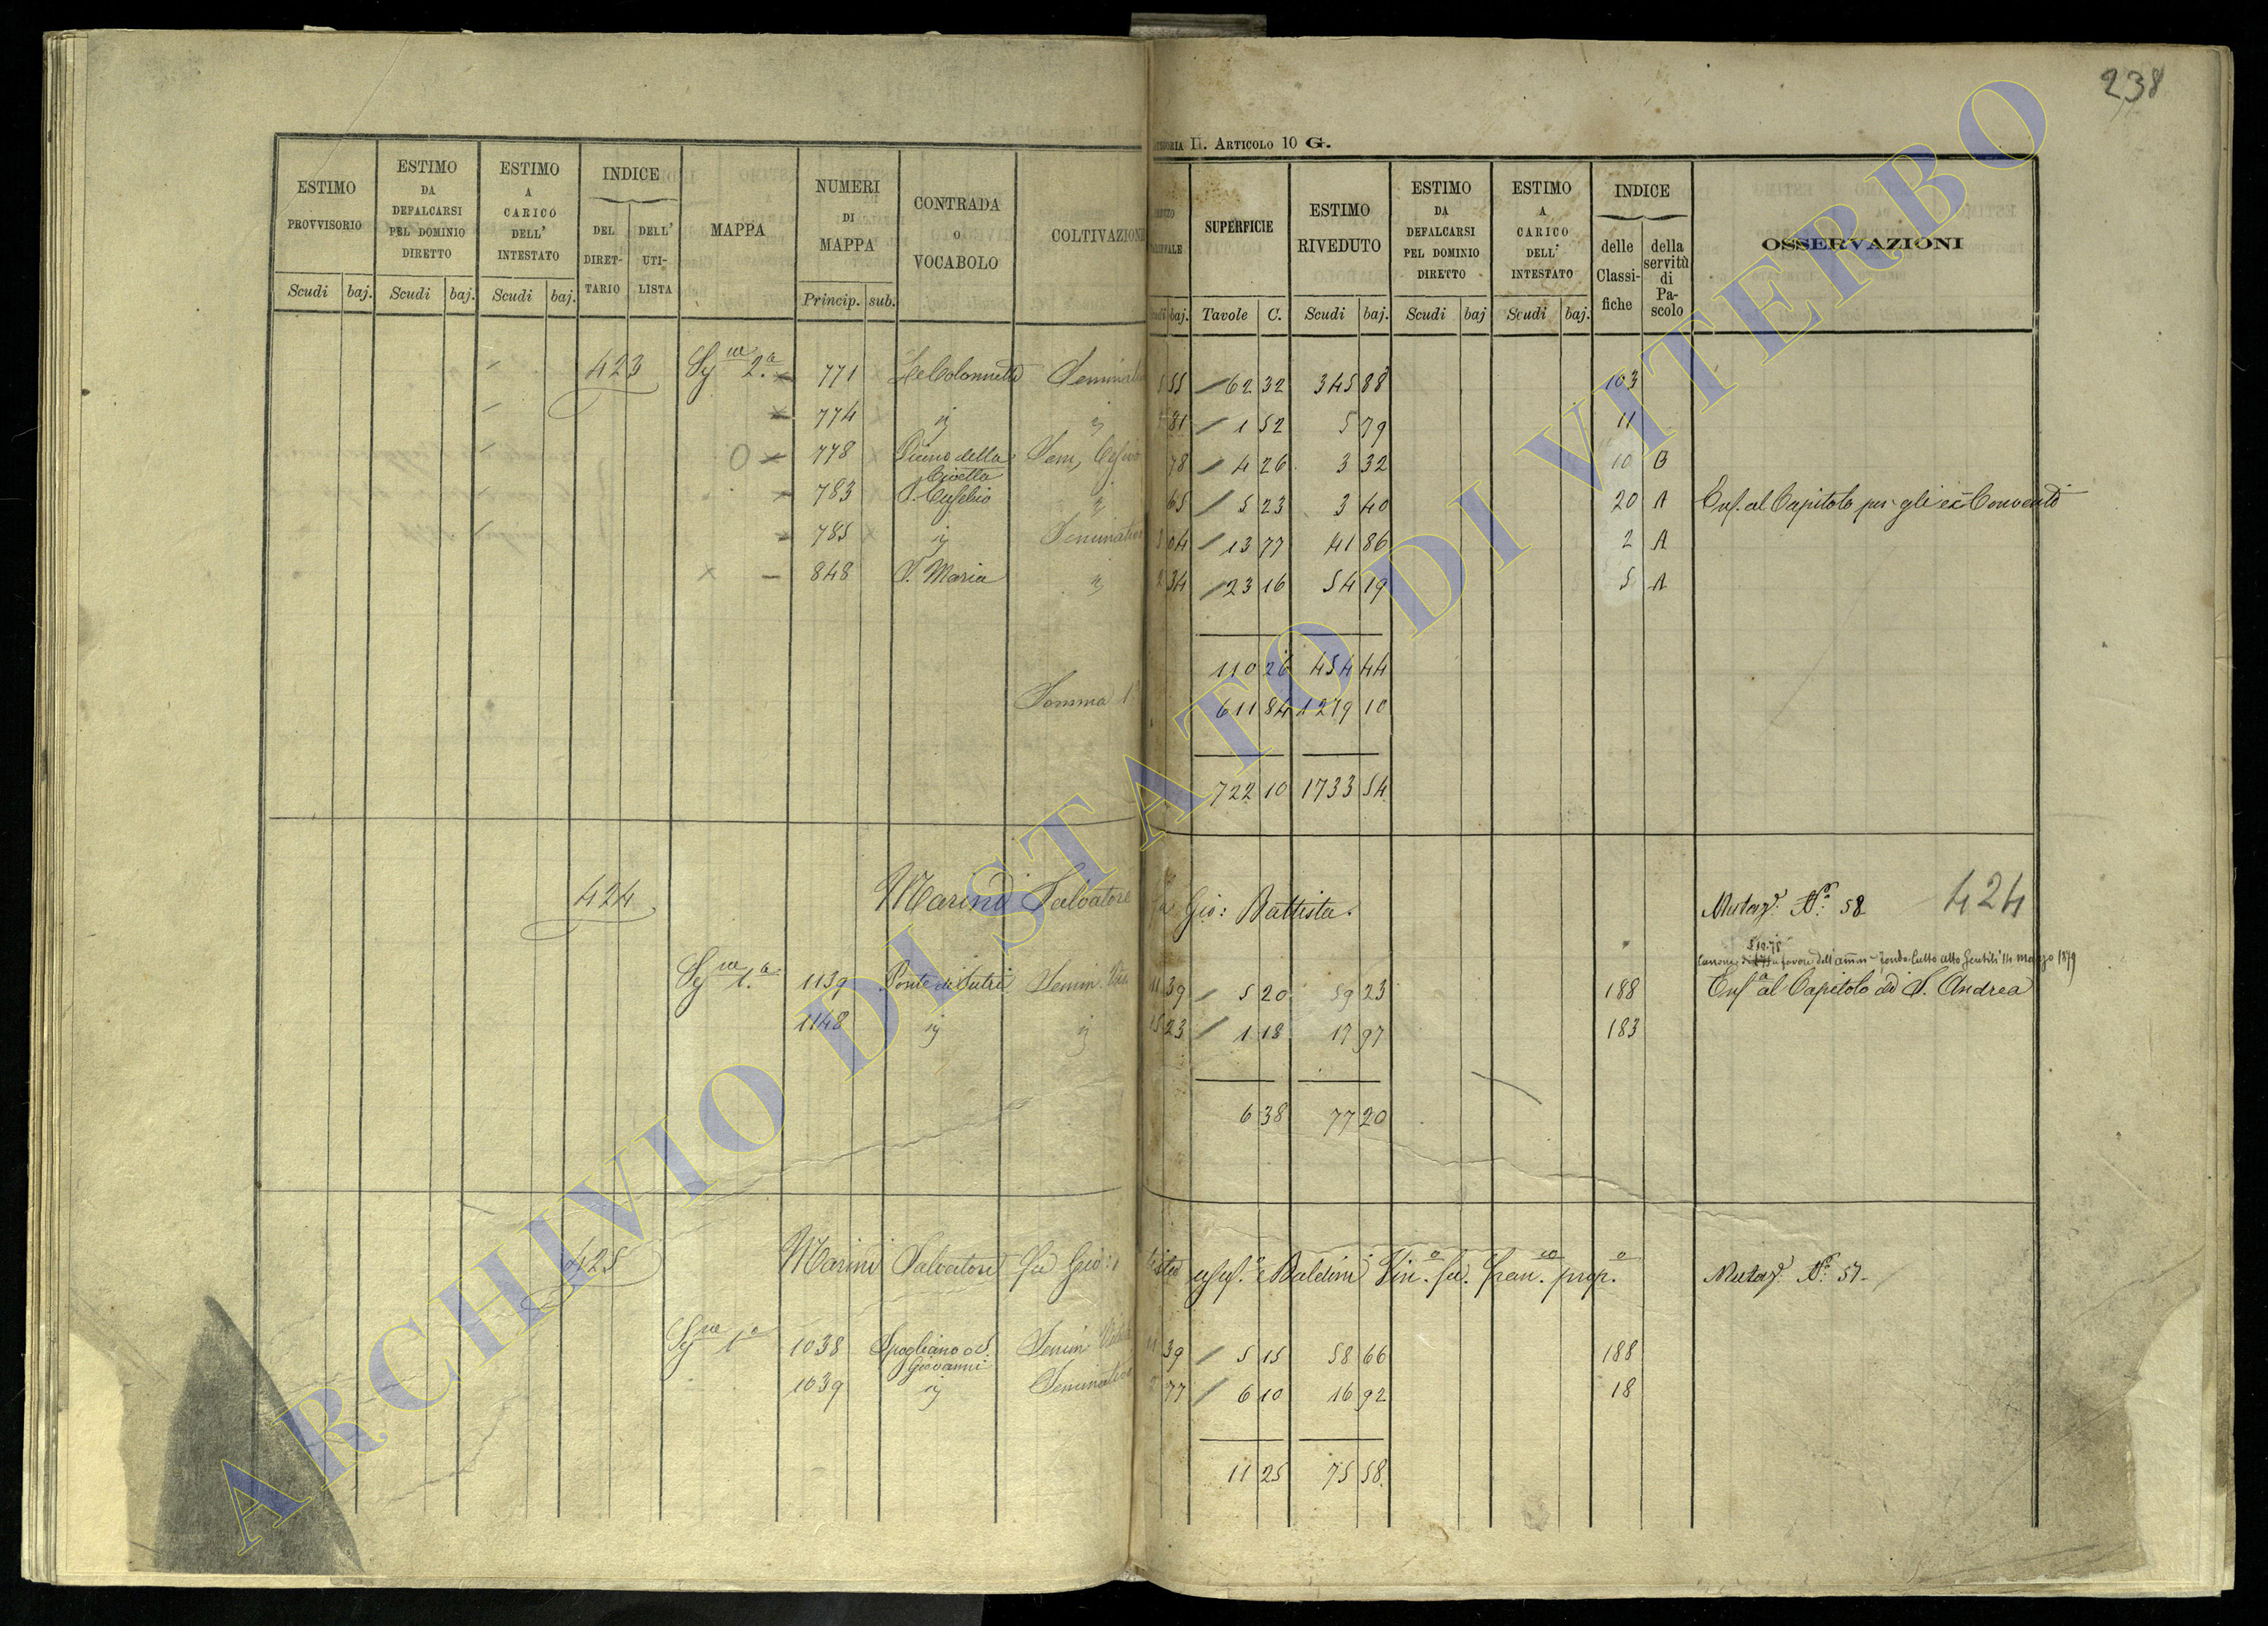 238
II. ARTICOLO 10 G.
ESTIMO PROVVISORIO
ESTIMO DA DEFALCARSI PEL DOMINIO DIRETTO
ESTIMO A CARICO DELL' INTESTATO
INDICE
DEL DIRETTARIO
DELL' UTILISTA
MAPPA
NUMERI DI MAPPA
CONTRADA O VOCABOLO
COLTIVAZIONE
SUPERFICIE
ESTIMO RIVEDUTO
ESTIMO DA DEFALCARSI PEL DOMINIO DIRETTO
ESTIMO A CARICO DELL' INTESTATO
INDICE
delle Classifiche
della servitù di Pascolo
OSSERVAZIONI
Scudi baj. Scudi baj. Scudi baj. Princip. sub. baj. Tavole C. Scudi baj. Scudi baj Scudi baj.
423 2.a 771 55 62 32 345 88 103
774 81 1 52 5 79 11
778 della 78 4 26 3 32 10 B
Civetta
783 S. Eusebio 65 5 23 3 40 20 A Enf. al Capitolo per gli ex Conventi
785 Seminativo 04 13 77 41 86 2 A
848 S. Maria 2 34 23 16 54 19 5 A
110 26 454 44
Somma 611 84 1279 10
722 10 1733 54
424 Marini Salvatore fu Gio: Battista. Mutaz. N.° 58 424
10.75
a favore dell' 14 marzo 1879
1.a 1139 Ponte di Sutri Semin. 11 39 5 20 59 23 188 Enf.a al Capitolo di S. Andrea
1148 15 23 1 18 17 97 183
6 38 77 20
425 Marini Salvatore fu Gio: usuf. e Baldini Vin.o fu Fran.co prop.o Mutaz. N.° 57
1a 1038 Spogliano o S. Semin. 11 39 5 15 58 66 188
Giovanni
1039 Seminativo 2 77 6 10 16 92 18
11 25 75 58
ARCHIVIO DI STATO DI VITERBO